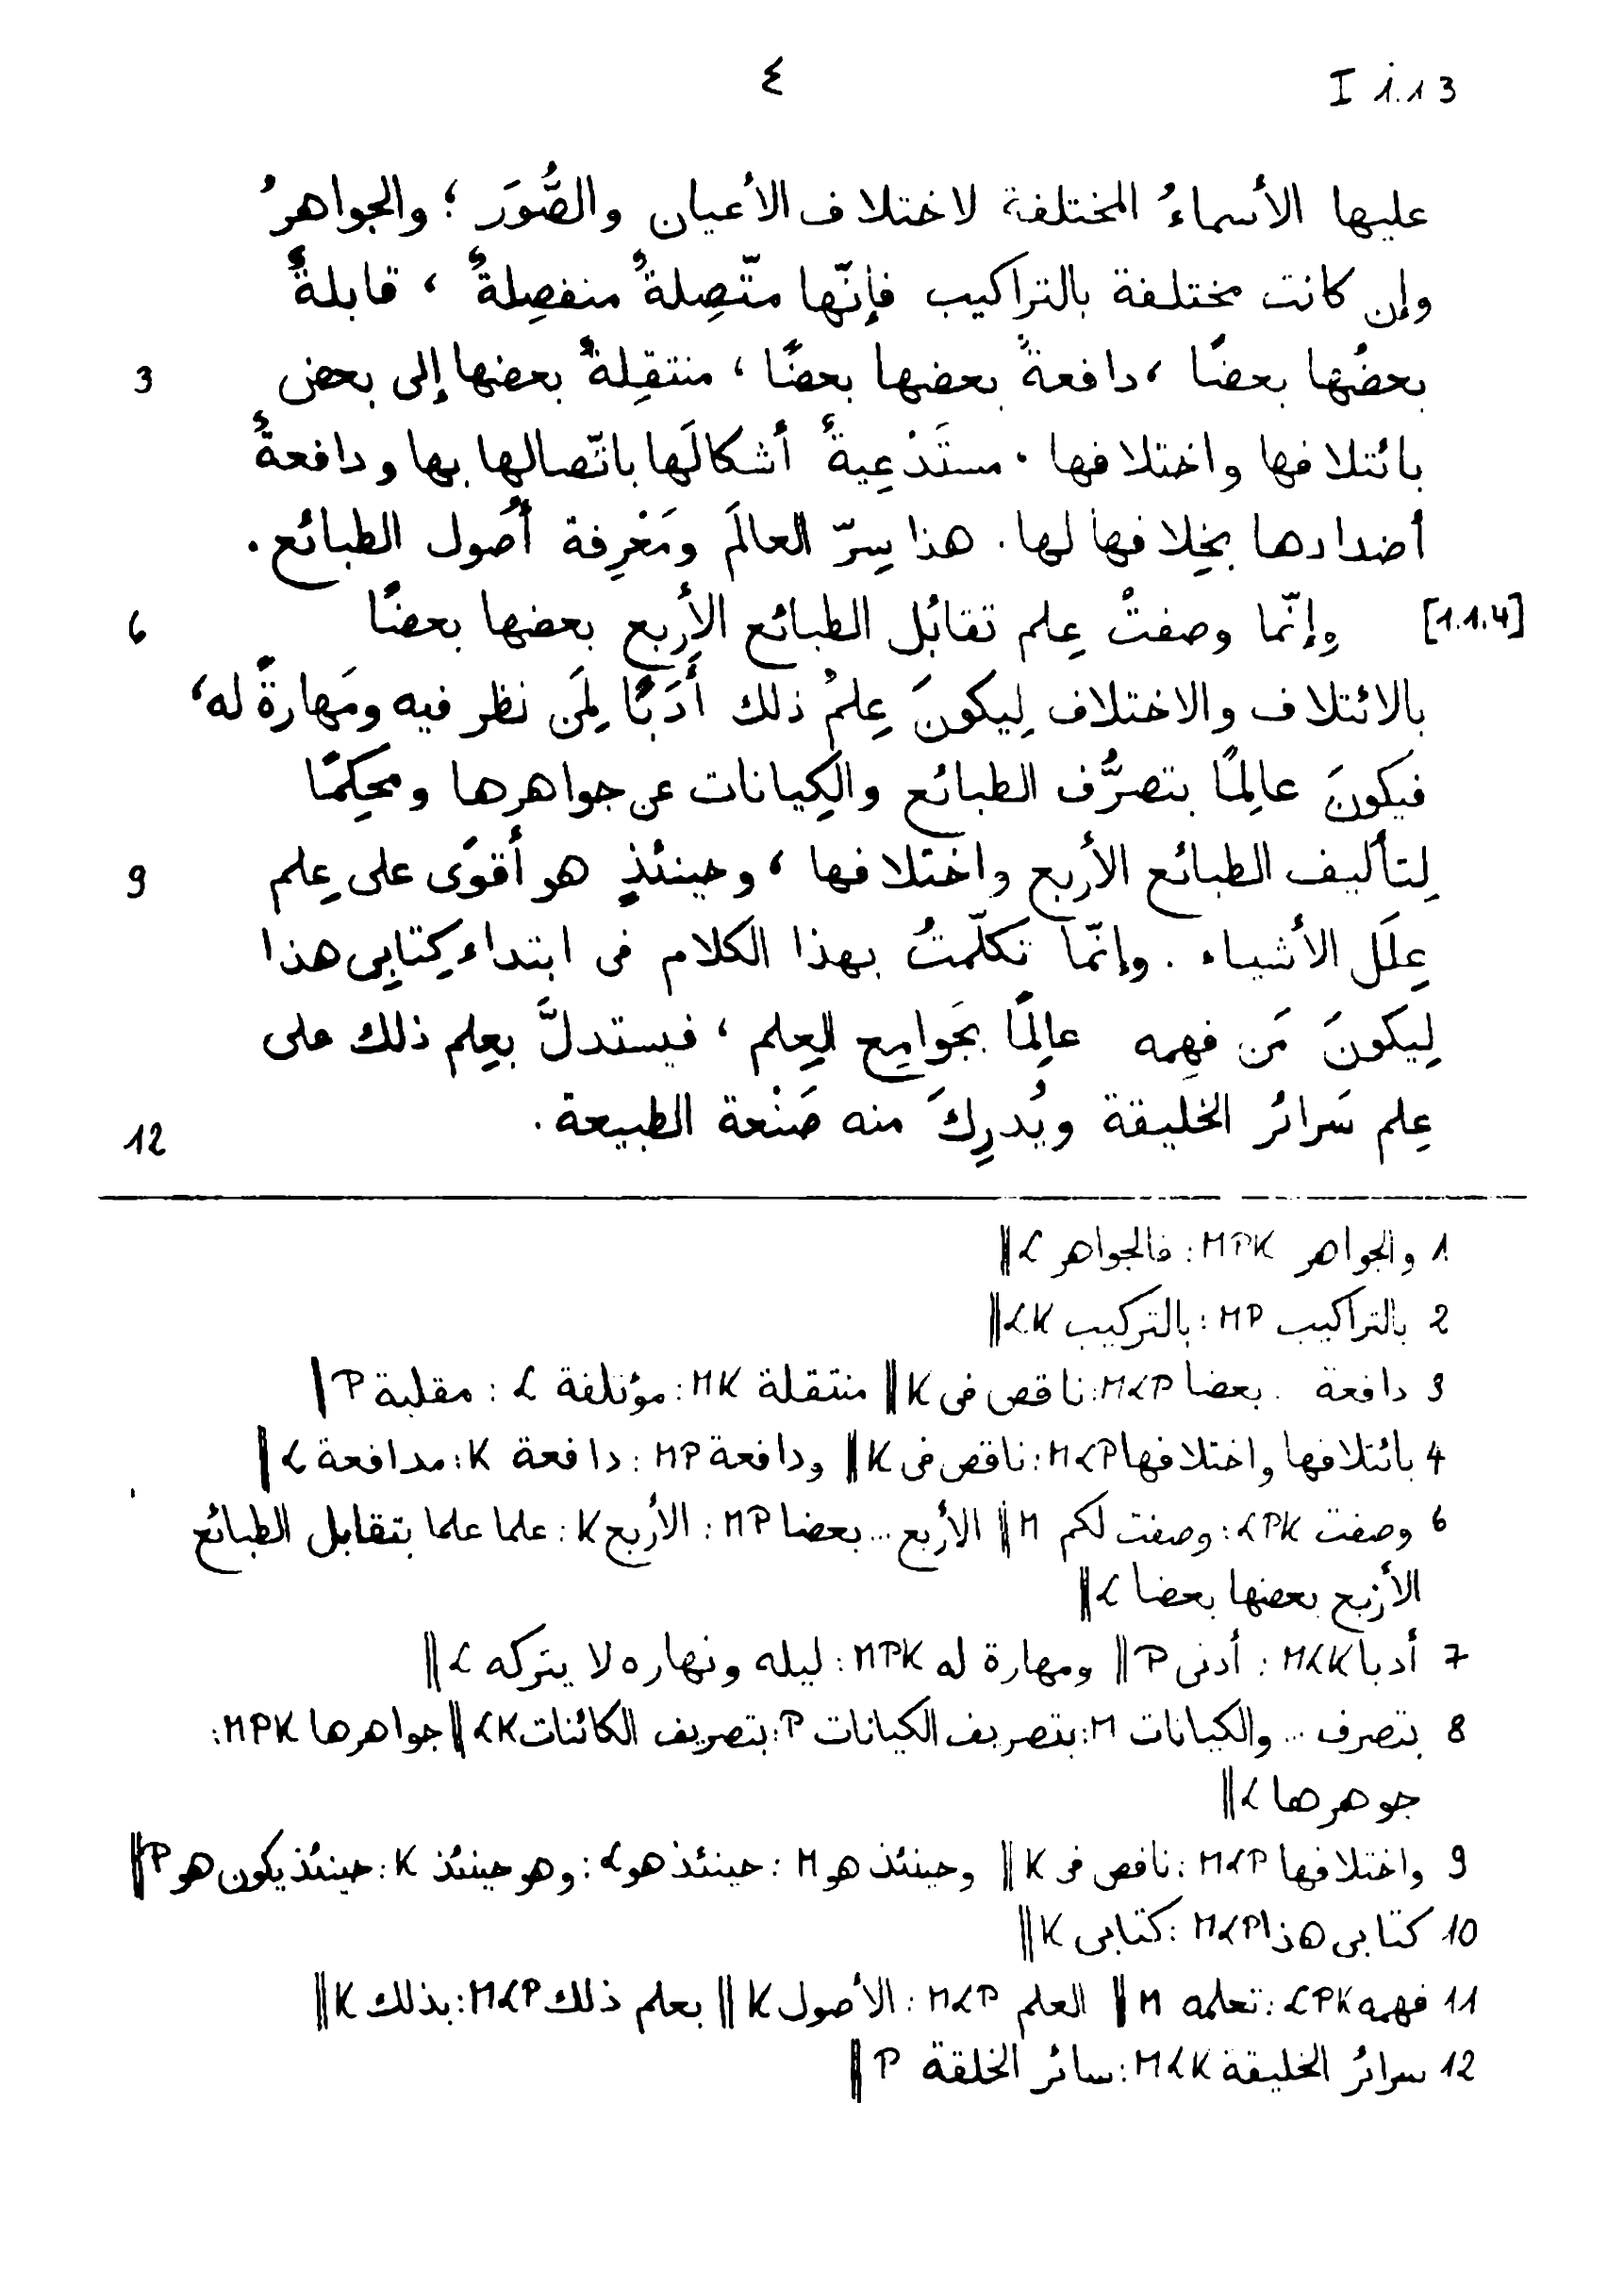 ٤ I 1.1.3
عليها الأسماءُ المختلفة لاختلاف الأعيان والصُّوَر ؛ والجواهرُ
وإن كانت مختلفة بالتراكيب فإنّها متّصِلةٌ منفصِلةٌ ، قابلةٌ
بعضُها بعضًا ، دافعةٌ بعضها بعضًا ، منتقِلةٌ بعضها إلى بعض 3
بائتلافها واختلافها ، مستَدْعِيةٌ أشكالَها باتّصالها بها ودافعةٌ
أضدادها بخِلافها لها . هذا سِرّ العالَم ومَعْرِفة أُصول الطبائع .
[1.1.4] وإنّما وصفتُ عِلم تقابُل الطبائع الأربع بعضها بعضًا 6
بالائتلاف والاختلاف لِيكونَ عِلمُ ذلك أَدَبًا لِمَن نظر فيه ومَهارةً له ،
فيكونَ عالِمًا بتصرُّف الطبائع والكِيانات عن جواهرها ومحكِمًا
لِتأليف الطبائع الأربع واختلافها ، وحينئذٍ هو أقوَى على عِلم 9
عِلَل الأشياء . وإنّما تكلّمتُ بهذا الكلام فى ابتداء كِتابِى هذا
لِيكونَ مَن فهِمه عالِمًا بجَوامِع العِلم ، فيستدلَّ بعِلم ذلك على
عِلم سَرائر الخليقة ويُدرِكَ منه صَنْعة الطبيعة . 12
1 والجواهر MPK : فالجواهر L ||
2 بالتراكيب MP : بالتركيب LK ||
3 دافعة .. بعضا MLP : ناقص فى K || منتقلة MK : مؤتلفة L : مقلبة P |
4 بائتلافها واختلافها MLP : ناقص فى K || ودافعة MP : دافعة K : مدافعة L ||
6 وصفت LPK : وصفت لكم M || الأربع ... بعضا MP : الأربع K : علما علما بتقابل الطبائع
الأربع بعضها بعضا L ||
7 أدبا MLK : أدنى P || ومهارة له MPK : ليله ونهاره لا يتركه L ||
8 بتصرف ... والكيانات M : بتصريف الكيانات P : بتصريف الكائنات LK || جواهرها MPK :
جوهرها L ||
9 واختلافها MLP : ناقص فى K || وحينئذ هو M : حينئذ هو L : وهو حينئذ K : حينئذ يكون هو P ||
10 كتابى هذا MLP : كتابى K ||
11 فهمه LPK : تعلمه M || العلم MLP : الأصول K || بعلم ذلك MLP : بذلك K ||
12 سرائر الخليقة MLK : سائر الخلقة P ||